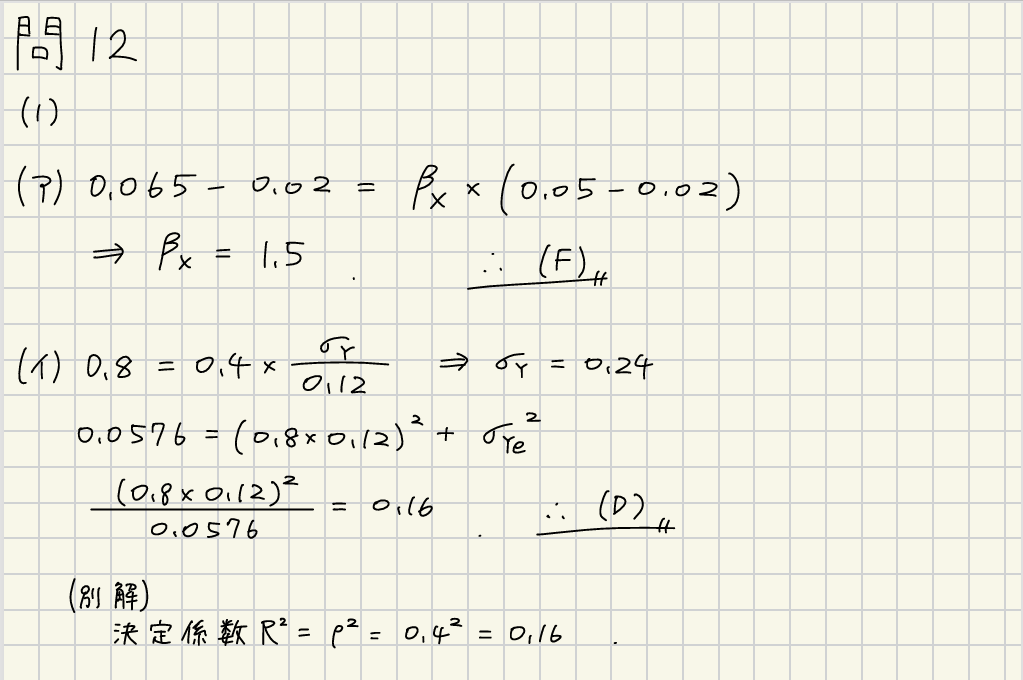 問 12
(1)
(ア) 0.065 - 0.02 = βx × (0.05 - 0.02)
⇒ βx = 1.5 . ∴ (F)〃
(イ) 0.8 = 0.4 × σY/0.12 ⇒ σY = 0.24
0.0576 = (0.8 × 0.12)² + σYe²
(0.8 × 0.12)²/0.0576 = 0.16 . ∴ (D)〃
(別解)
決定係数 R² = ρ² = 0.4² = 0.16 .